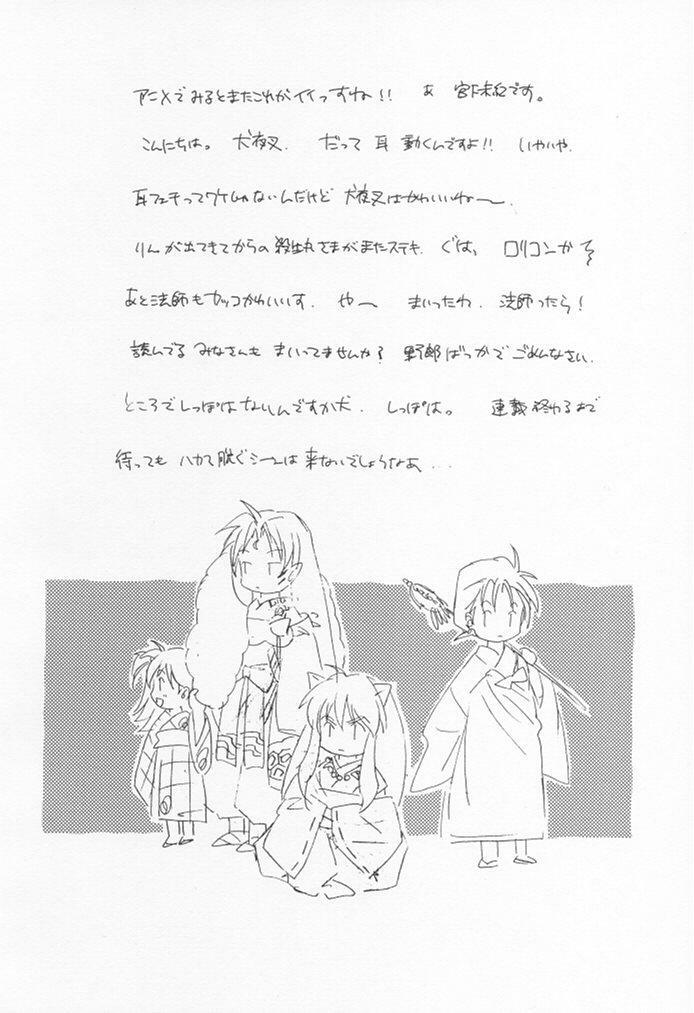 アニメでみるとまたこれがイイっすね!! あ 宮下未紀です。
こんにちは。 犬夜叉. だって 耳 動くんですよ!! いやいや.
耳フェチってワケじゃないんだけど 犬夜叉はかわいいねー.
りんが出てきてからの殺生丸さまがまたステキ. ぐは、 ロリコンかぞ
あと法師もカッコかわいいす. やー まいったわ. 法師ったら!
読んでる みなさんも まいってませんか? 野郎ばっかでごめんなさい.
ところでしっぽはないんですか犬. しっぽは。 連載終わるまで
待っても ハカマ脱ぐシーンは来ないでしょうなあ...